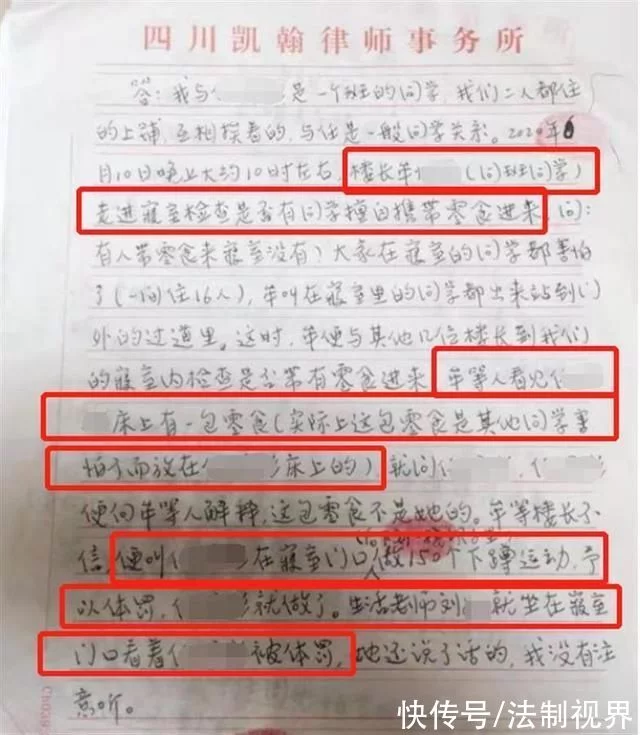 四川凯翰律师事务所
答：我与 是一个班的同学，我们二人都住
的上铺，互相挨着的，与任是一般同学关系。2020年6
月10日晚上大约10时左右，楼长牟 （同班同学）
走进寝室检查是否有同学擅自携带零食进来，问：
有人带零食来寝室没有）大家在寝室的同学都害怕
了（一间住16人），牟叫在寝室里的同学都出来站到门
外的过道里。这时，牟便与其他几位楼长到我们
的寝室内检查是否带有零食进来，牟等人看见任
床上有一包零食（实际上这包零食是其他同学害
怕了而放在任 床上的），就问任 ，任
便向牟等人解释，这包零食不是她的。牟等楼长不
信，便叫任 在寝室门口做150个下蹲运动，予
以体罚，任 就做了。生活老师刘 就坐在寝室
门口看着任 被体罚，她还说了话的，我没有注
意听。
快传号/法制视界